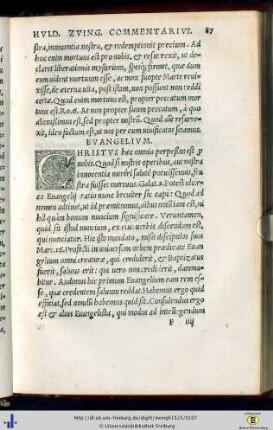 HVLD. ZVING. COMMENTARIVS. 87
stra, innocentia nostra, & redemptionis precium. Ad
hoc enim mortuus est pro nobis, & resurrexit, ut de
claret liberationis mysterium, spemq; firmet, quæ dum
eum uident mortuum esse, ac mox suopte Marte reui
xisse, de æterna uita, post istam, non possunt non reddi
certæ. Quod enim mortuus est, propter precatum mor
tuus est. Ro.6. At non propter suum peccatum, à quo
alienissimus est, sed propter nostrum. Quod aũt resurre
xit, ideo factum est, ut nos per eum uiuificatos
EVANGELIVM.
CHRISTVS hæc omnia perpessus est p
nobis. Quod si nostris operibus, aut nostra
innocentia mereri salutē potuissemus, fru
stra fuisset mortuus. Galat.2. Potest
Euangelij ratio nunc breuiter sic capi: Quod ad
nomen attinet, ut id præmittamus, est, ut ni
hil quàm bonum nuncium significare. Veruntamen,
quid sit istud nuncium, ex eius uerbis discendum est,
qui nunciatur. Hic istis mandato, misit discipulos suos
Marc.16. Profecti in uniuersum orbem prædicate Euan
gelium omni creaturæ, qui crediderit, & Baptizatus
fuerit, saluus erit: qui uero non crediderit, damna
bitur. Audimus hic primum Euangelium eam rem es
se, quæ credentem saluum reddat. Habemus ergo quid
efficiat, sed nondū habemus quid sit. Consulendus ergo
est & alius Euangelista, qui modus ad intelligendum
F iiij
http://dl.ub.uni-freiburg.de/diglit/zwingli1525/0107
© Universitätsbibliothek Freiburg